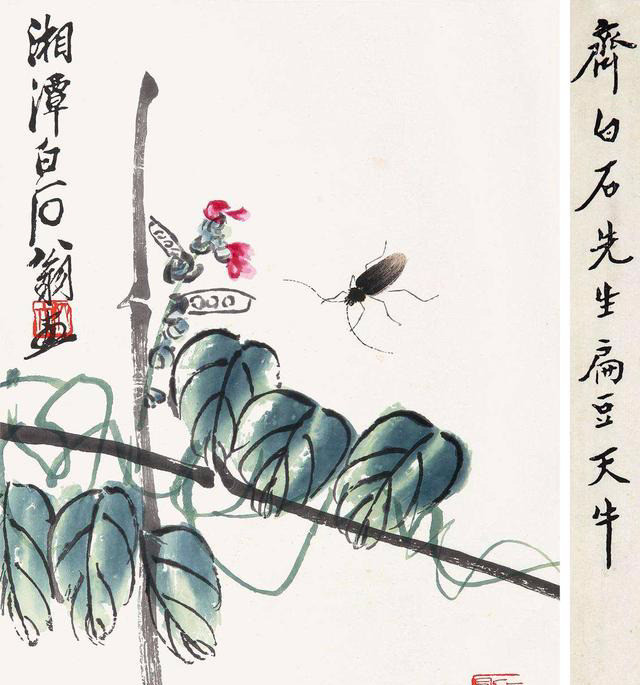 齊白石先生扁豆天牛
湘潭白石翁